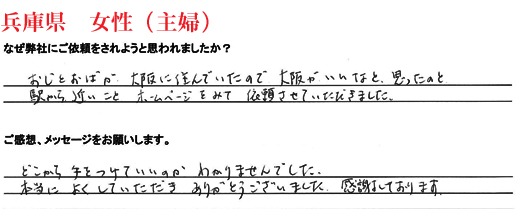 兵庫県 女性（主婦）
なぜ弊社にご依頼をされようと思われましたか？
おじとおばが、大阪に住んでいたので 大阪がいいなと、思ったのと
駅から 近いこと ホームページをみて 依頼させていただきました。
ご感想、メッセージをお願いします。
どこから 手をつけていいのか わかりませんでした。
本当に よくしていただき ありがとうございました。感謝しております。